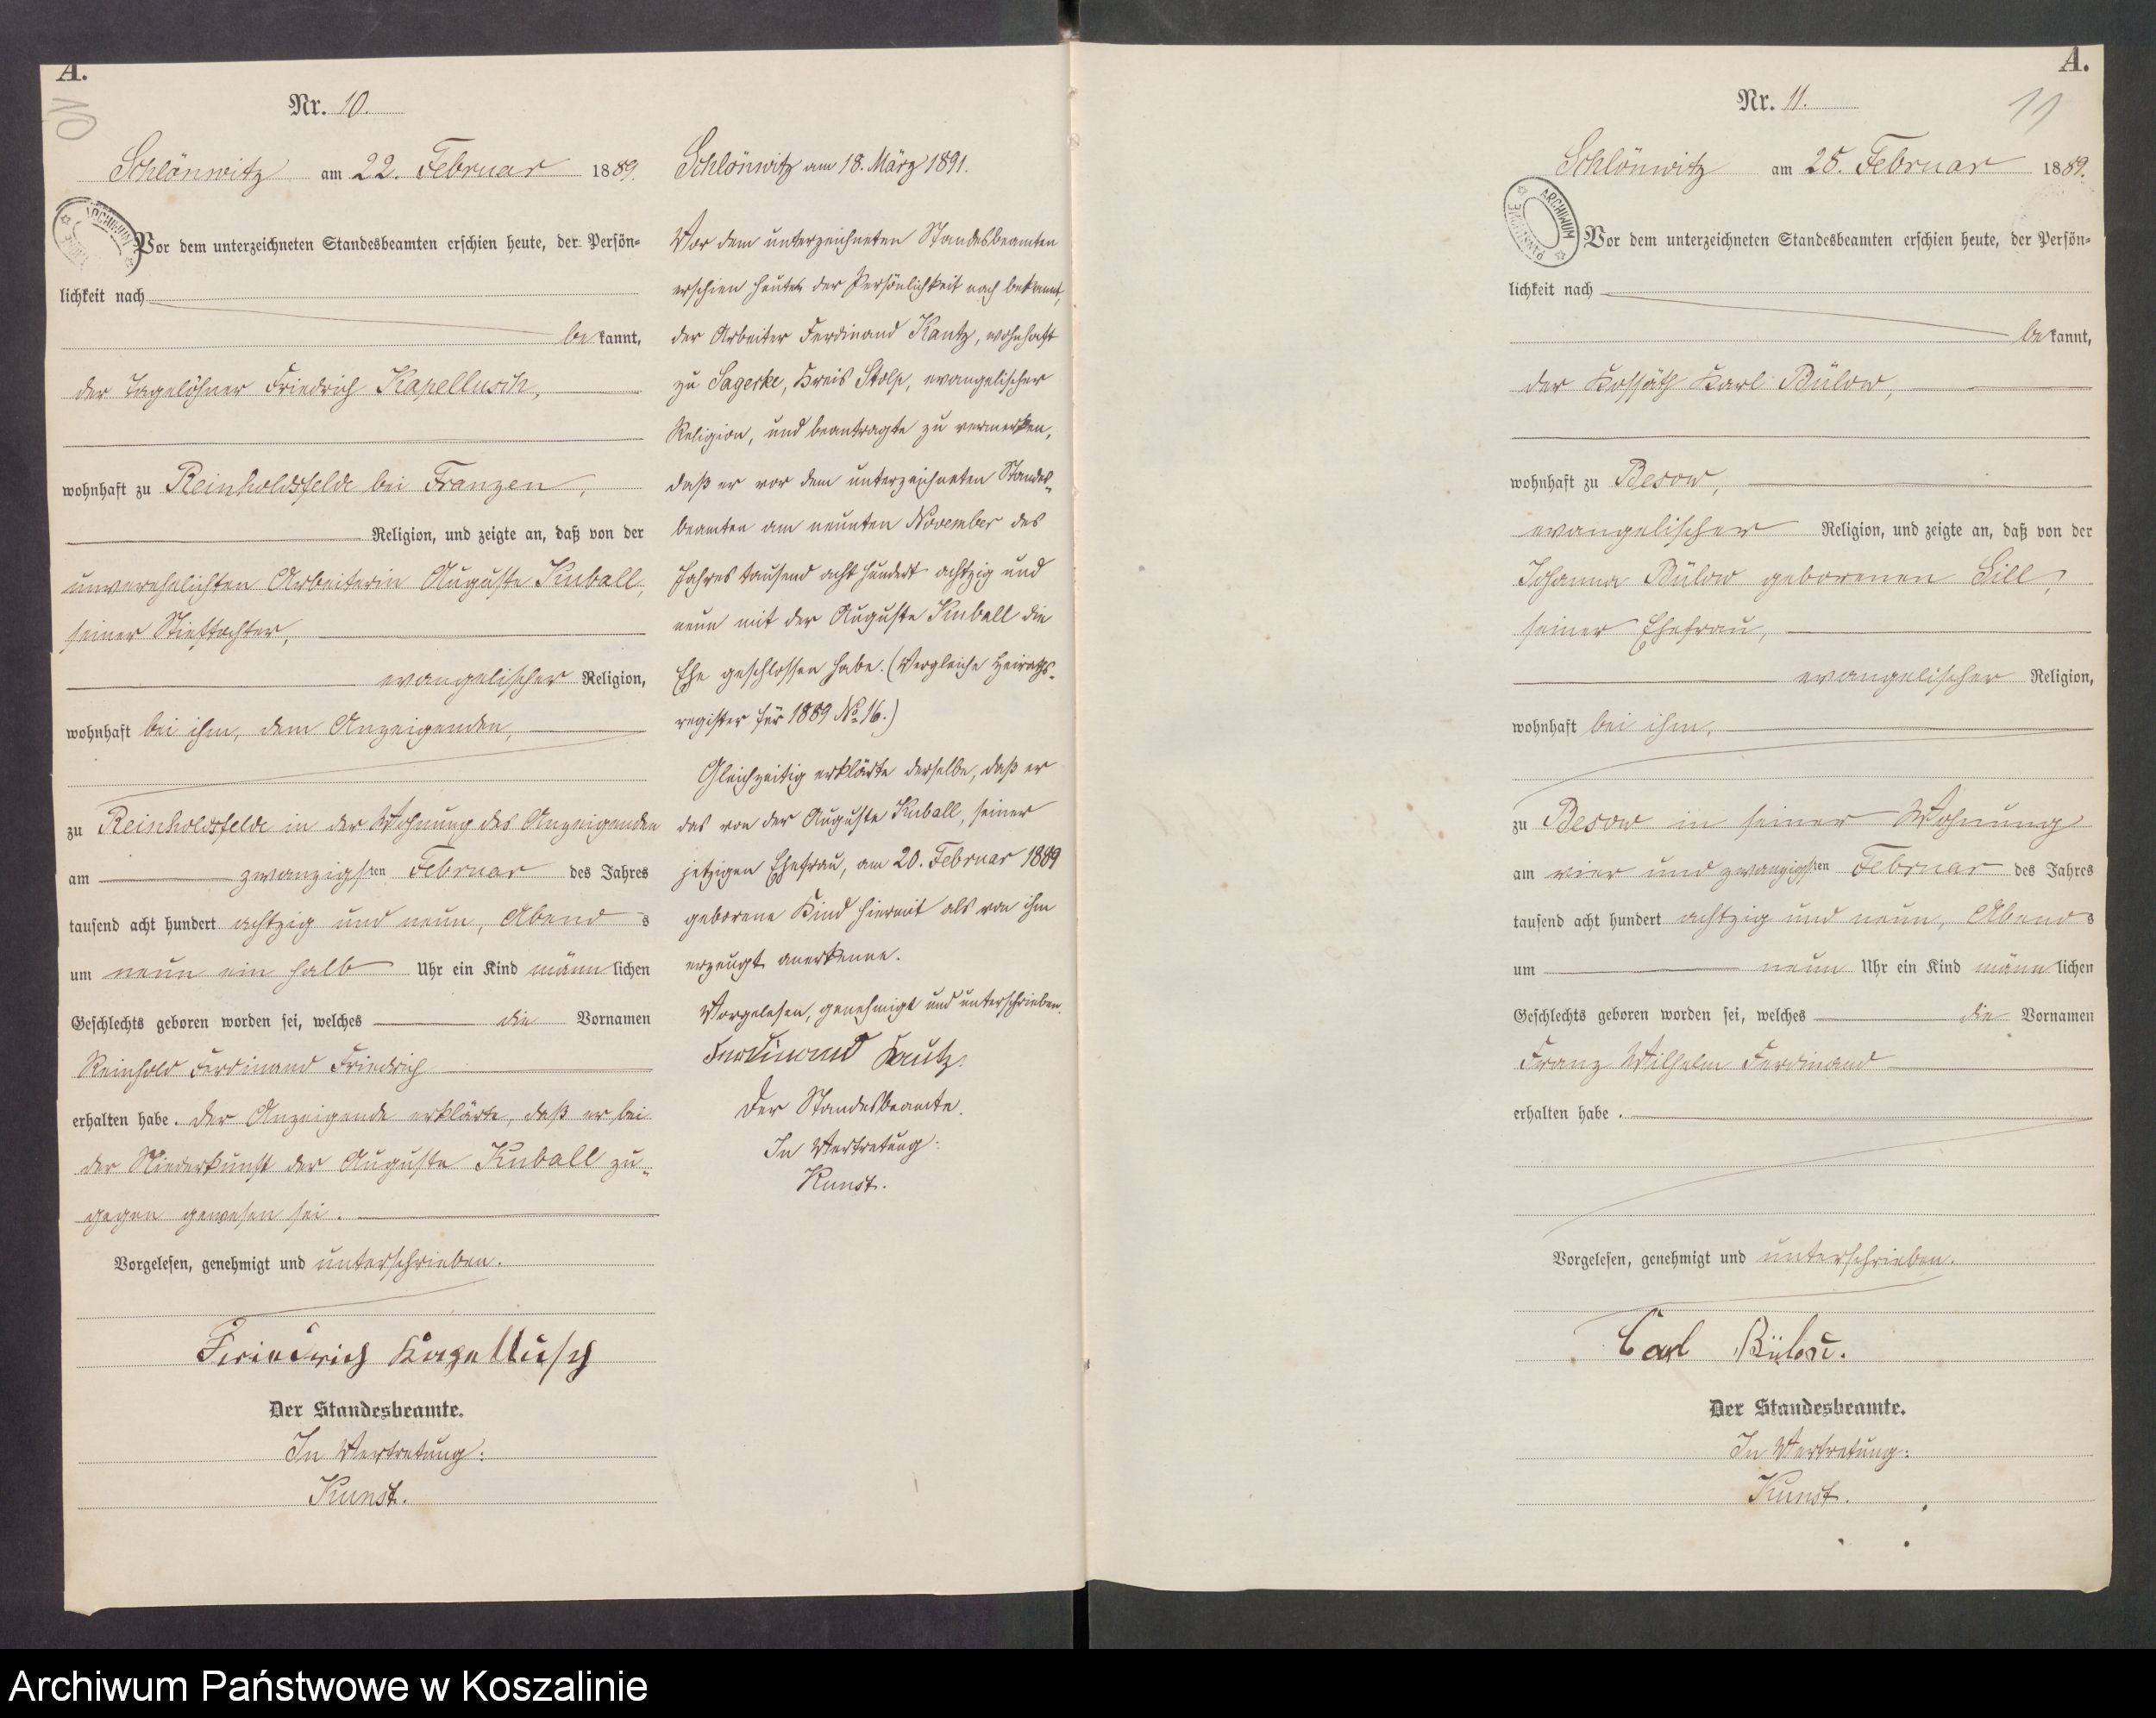 A.
10
Nr. 10.
Schlönwitz am 22. Februar 1889.
Vor dem unterzeichneten Standesbeamten erschien heute, der Persön-
lichkeit nach
bekannt,
der Tagelöhner Friedrich Kapellusch,
wohnhaft zu Reinholdsfelde bei Franzen,
Religion, und zeigte an, daß von der
unverehelichten Arbeiterin Auguste Knball,
seiner Stieftochter,
evangelischer Religion,
wohnhaft bei ihm, dem Anzeigenden,
zu Reinholdsfelde in der Wohnung des Anzeigenden
am zwanzigsten Februar des Jahres
tausend acht hundert achtzig und neun, Abends
um neun ein halb Uhr ein Kind männlichen
Geschlechts geboren worden sei, welches die Vornamen
Reinhold Ferdinand Friedrich
erhalten habe. Der Anzeigende erklärte, daß er bei
der Niederkunft der Auguste Knball zu-
gegen gewesen sei.
Vorgelesen, genehmigt und unterschrieben.
Friedrich Kapellusch
Der Standesbeamte.
In Vertretung:
Kunst.
Schlönwitz am 18. März 1891.
Vor dem unterzeichneten Standesbeamten
erschien heute, der Persönlichkeit nach bekannt,
der Arbeiter Ferdinand Kautz, wohnhaft
zu Sagerke, Kreis Stolp, evangelischer
Religion, und beantragte zu vermerken,
daß er vor dem unterzeichneten Standes-
beamten am neunten November des
Jahres tausend acht hundert achtzig und
neun mit der Auguste Knball die
Ehe geschlossen habe. (Vergleiche Heiraths-
register für 1889 No 16.)
Gleichzeitig erklärte derselbe, daß er
das von der Auguste Knball, seiner
jetzigen Ehefrau, am 20. Februar 1889
geborene Kind hiermit als von ihm
erzeugt anerkenne.
Vorgelesen, genehmigt und unterschrieben.
Ferdinand Kautz.
Der Standesbeamte.
In Vertretung:
Kunst.
A.
11
Nr. 11.
Schlönwitz am 25. Februar 1889.
ARCHIWUM PAŃSTWOWE
Vor dem unterzeichneten Standesbeamten erschien heute, der Persön-
lichkeit nach
bekannt,
der Kossäth Karl Bülow,
wohnhaft zu Besow,
evangelischer Religion, und zeigte an, daß von der
Johanna Bülow geborenen Lill,
seiner Ehefrau,
evangelischer Religion,
wohnhaft bei ihm,
zu Besow in seiner Wohnung
am vier und zwanzigsten Februar des Jahres
tausend acht hundert achtzig und neun, Abends
um neun Uhr ein Kind männlichen
Geschlechts geboren worden sei, welches die Vornamen
Franz Wilhelm Ferdinand
erhalten habe.
Vorgelesen, genehmigt und unterschrieben.
Carl Bülow.
Der Standesbeamte.
In Vertretung:
Kunst.
Archiwum Państwowe w Koszalinie